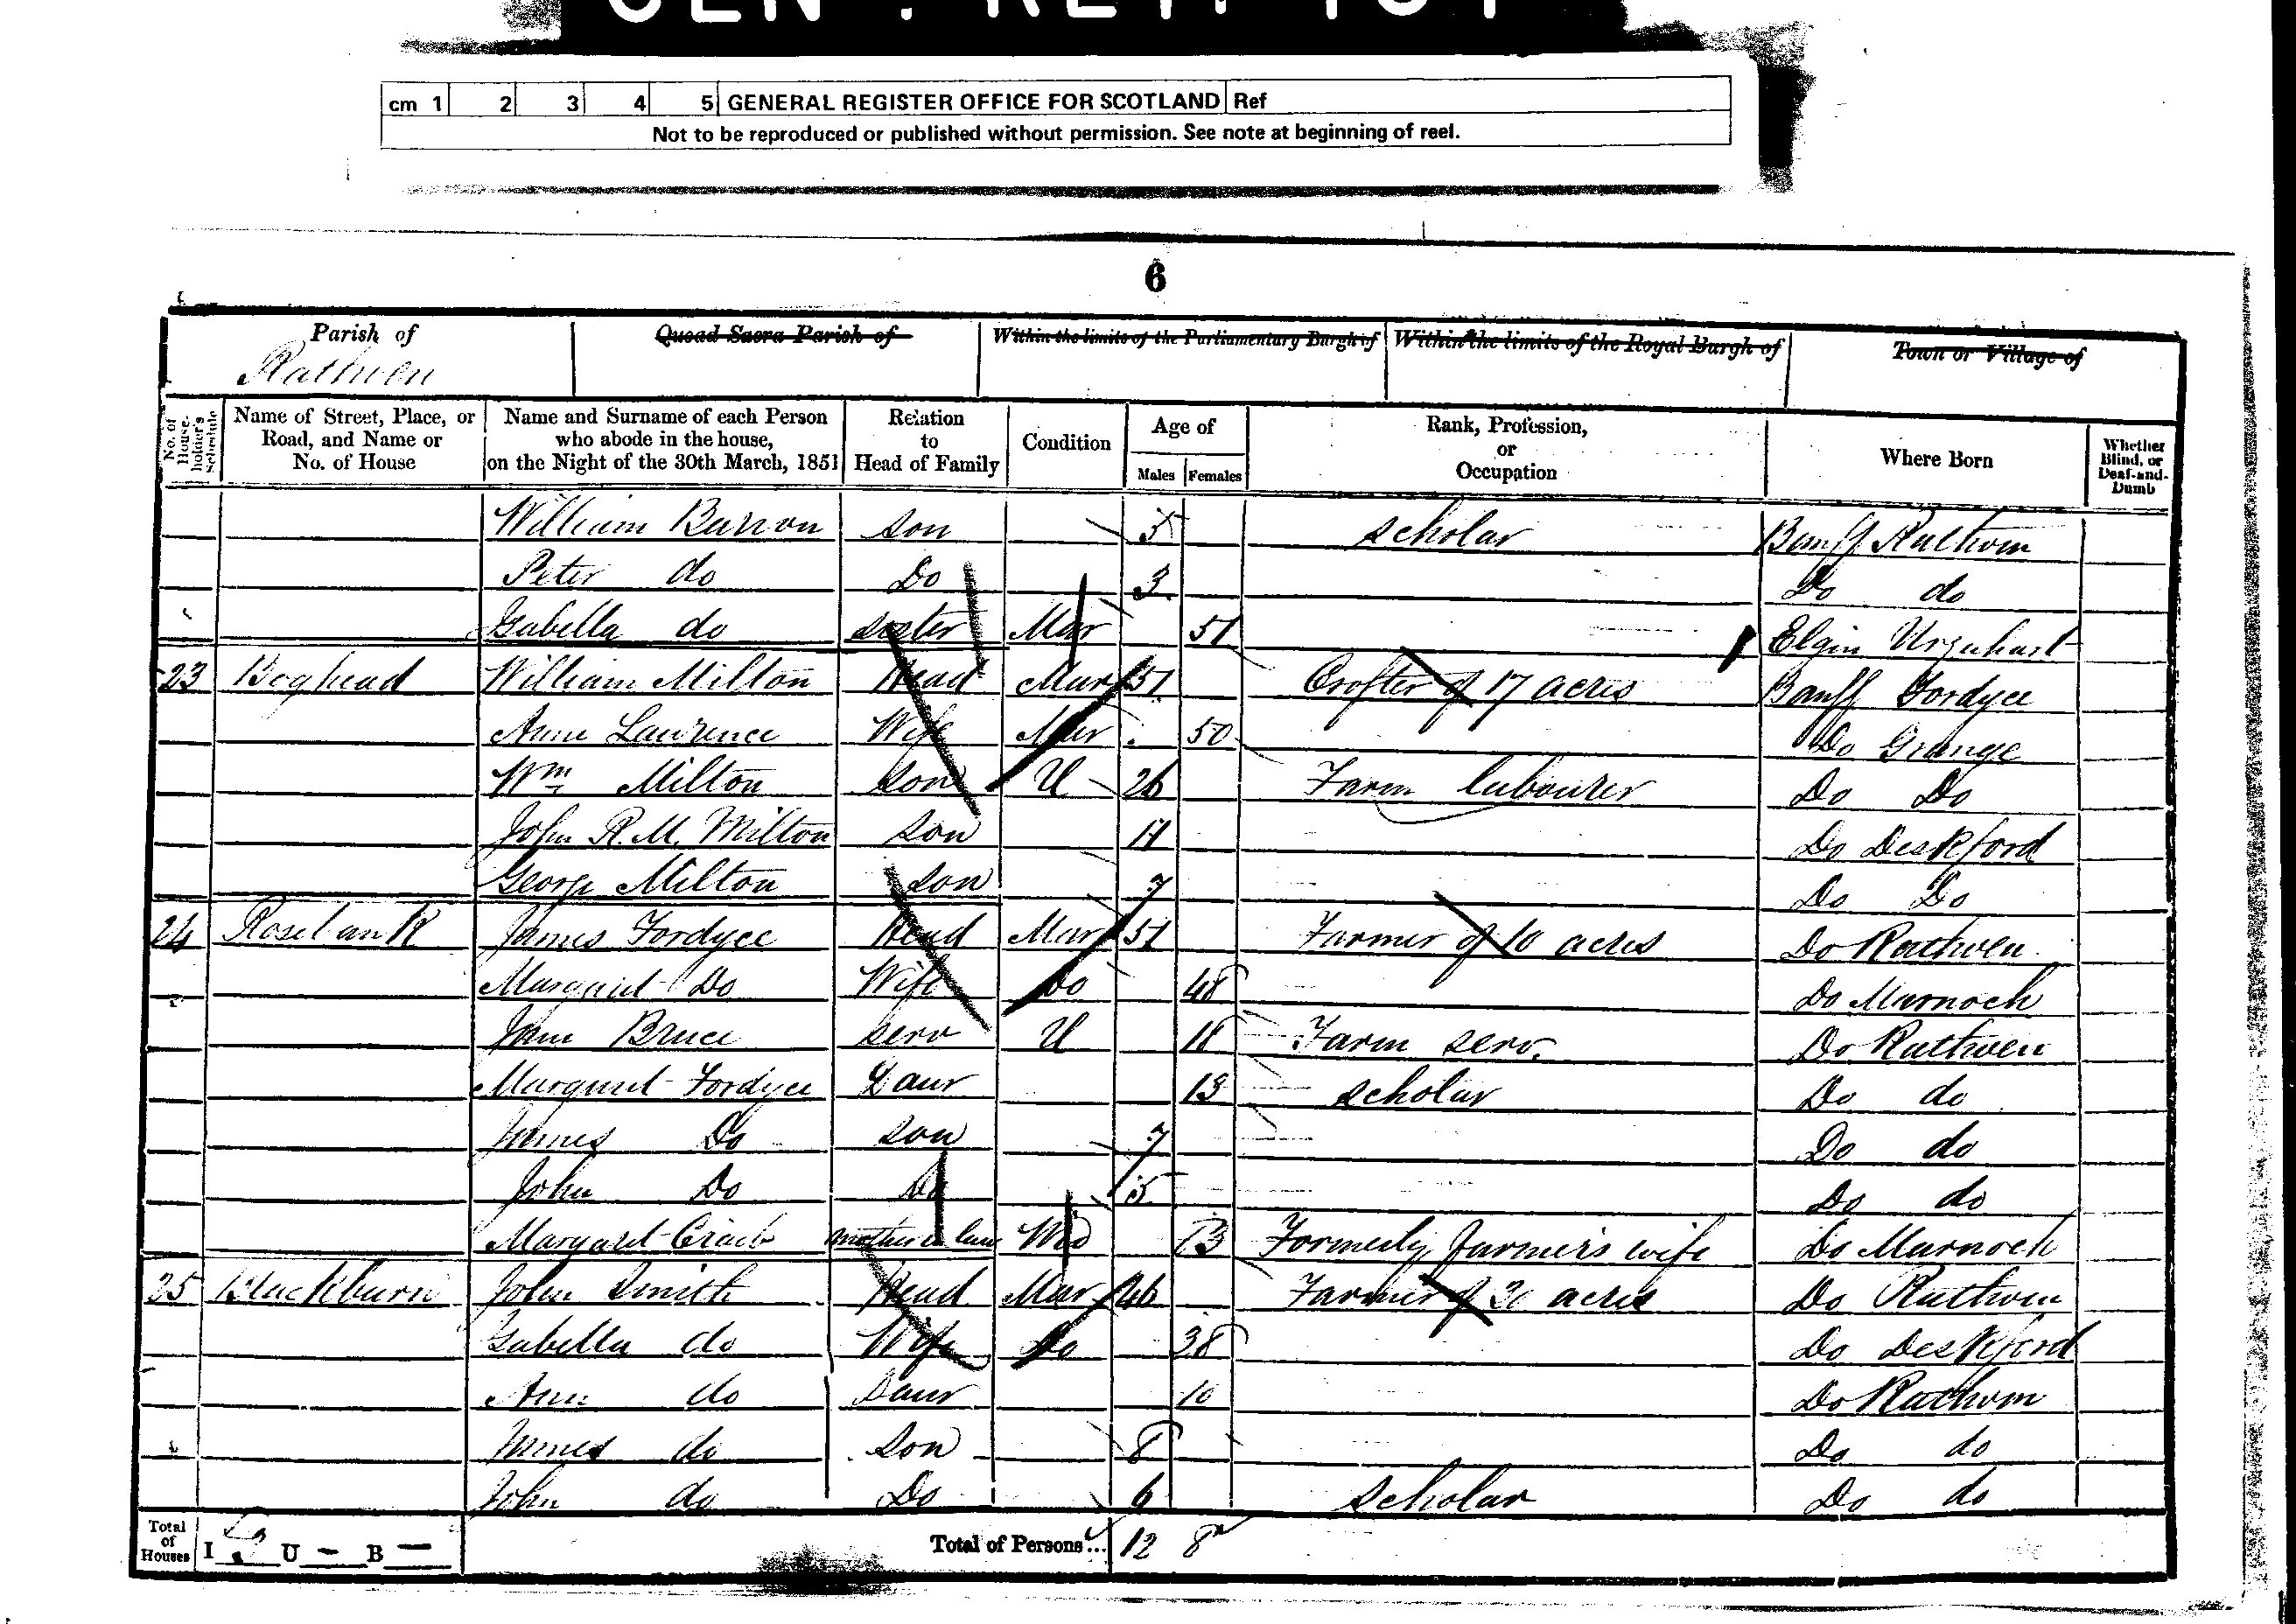 cm 1 2 3 4 5 GENERAL REGISTER OFFICE FOR SCOTLAND Ref
Not to be reproduced or published without permission. See note at beginning of reel.
6
Parish of Quoad Sacra Parish of Within the limits of the Parliamentary Burgh of Within the limits of the Royal Burgh of Town or Village of
Rathven
No. of House-holder's Schedule Name of Street, Place, or Road, and Name or No. of House Name and Surname of each Person who abode in the house, on the Night of the 30th March, 1851 Relation to Head of Family Condition Age of Males Females Rank, Profession, or Occupation Where Born Whether Blind, or Deaf-and-Dumb
William Barron son 5 scholar Banff Rathven
Peter do Do 3 Do do
Isabella do sister Mar 51 Elgin Urquhart
23 Boghead William Milton Head Mar 51 Crofter of 17 acres Banff Fordyce
Anne Lawrence Wife Mar 50 Do Grange
Wm Milton son U 26 Farm labourer Do Do
John R. M. Milton son 11 Do Deskford
George Milton son 7 Do Do
24 Rosebank James Fordyce Head Mar 51 Farmer of 10 acres Do Rathven
Margaret Do Wife Do 48 Do Marnoch
Jane Bruce serv U 18 Farm serv. Do Rathven
Margaret Fordyce Daur 13 scholar Do do
James Do son 7 Do do
John Do Do 5 Do do
Margaret mother in law Wid 73 Formerly farmer's wife Do Marnoch
25 Blackburn John Smith Head Mar 46 Farmer of 30 acres Do Rathven
Isabella do Wife Do 38 Do Deskford
Ann do Daur 10 Do Rathven
James do Son 8 Do do
John do Do 6 scholar Do do
Total of Houses I 3 U – B – Total of Persons... 12 8